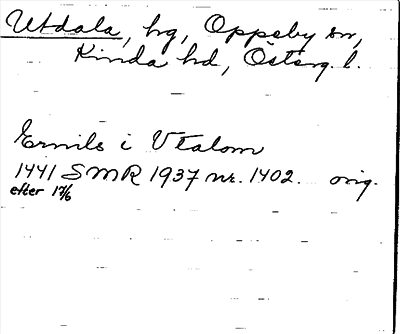 Utdala, hg, Oppeby sn,
Kinda hd, Österg. l.
Ernils i Vtalom
1441 SMR 1937 nr. 1402. orig.
efter 17/6